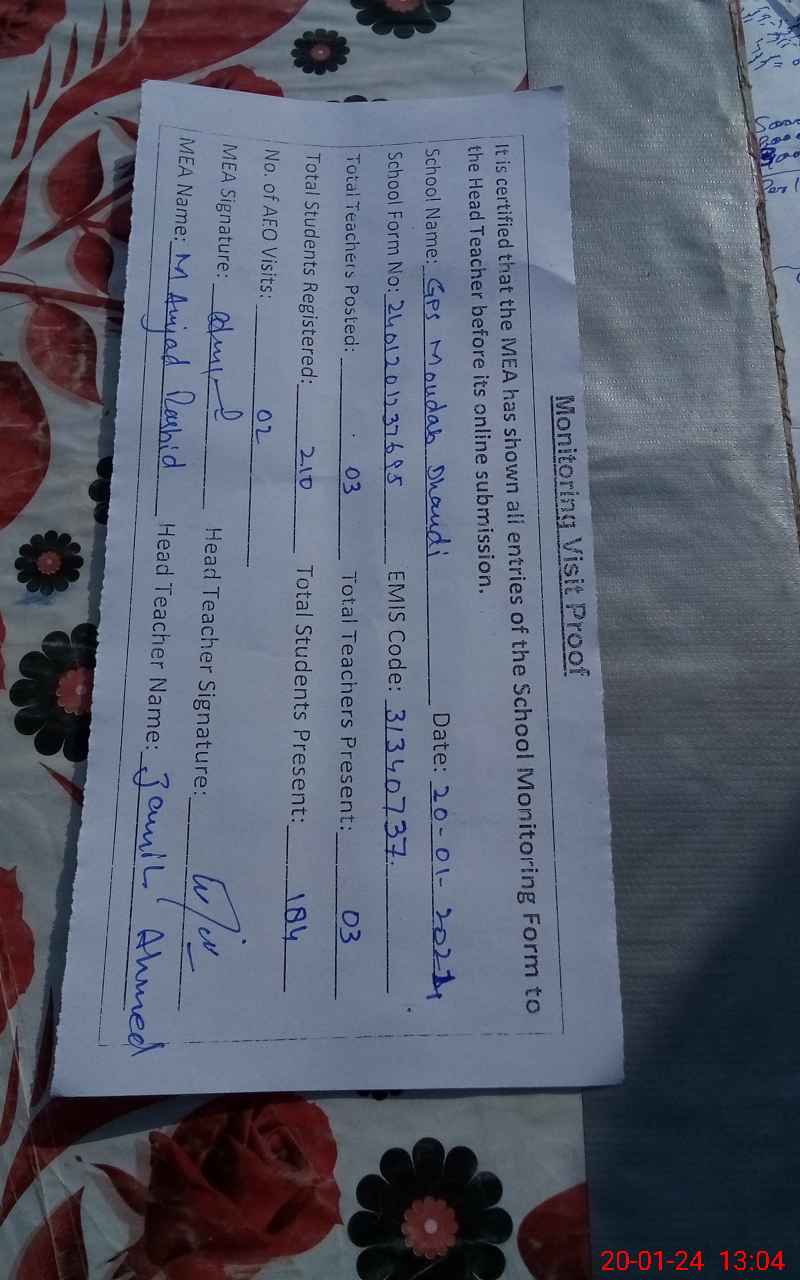 Monitoring Visit Proof
It is certified that the MEA has shown all entries of the School Monitoring Form to
the Head Teacher before its online submission.
School Name: GPS Moudah Dhandi Date: 20-01-2024
School Form No: 2401201737695 EMIS Code: 31340737
Total Teachers Posted: 03 Total Teachers Present: 03
Total Students Registered: 210 Total Students Present: 184
No. of AEO Visits: 02
MEA Signature: Head Teacher Signature:
MEA Name: M Amjad Rashid Head Teacher Name: Jamil Ahmed
20-01-24 13:04